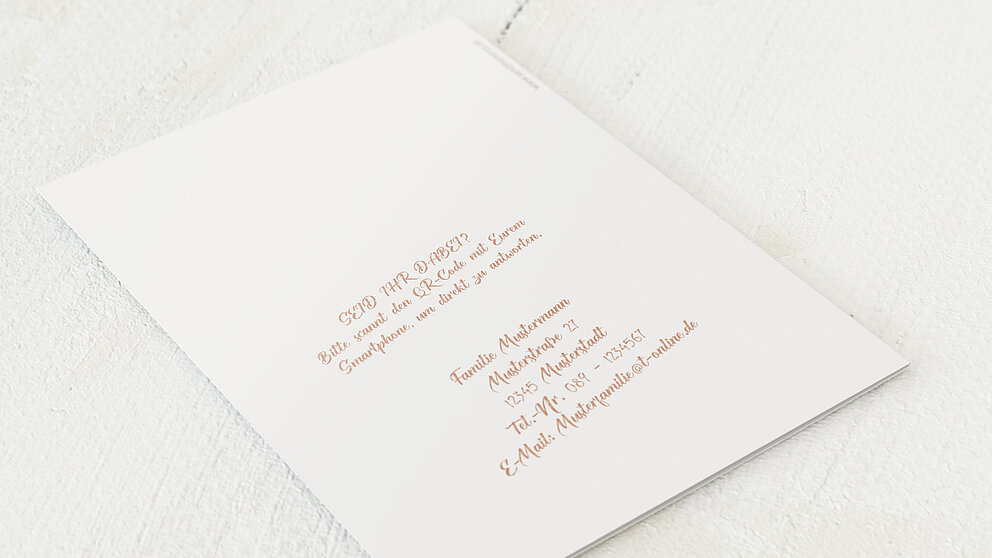 SEID IHR DABEI?
Bitte scannt den QR-Code mit Eurem
Smartphone, um direkt zu antworten.
Familie Mustermann
Musterstraße 27
12345 Musterstadt
Tel.-Nr. 089 - 1234567
E-Mail: Musterfamilie@t-online.de